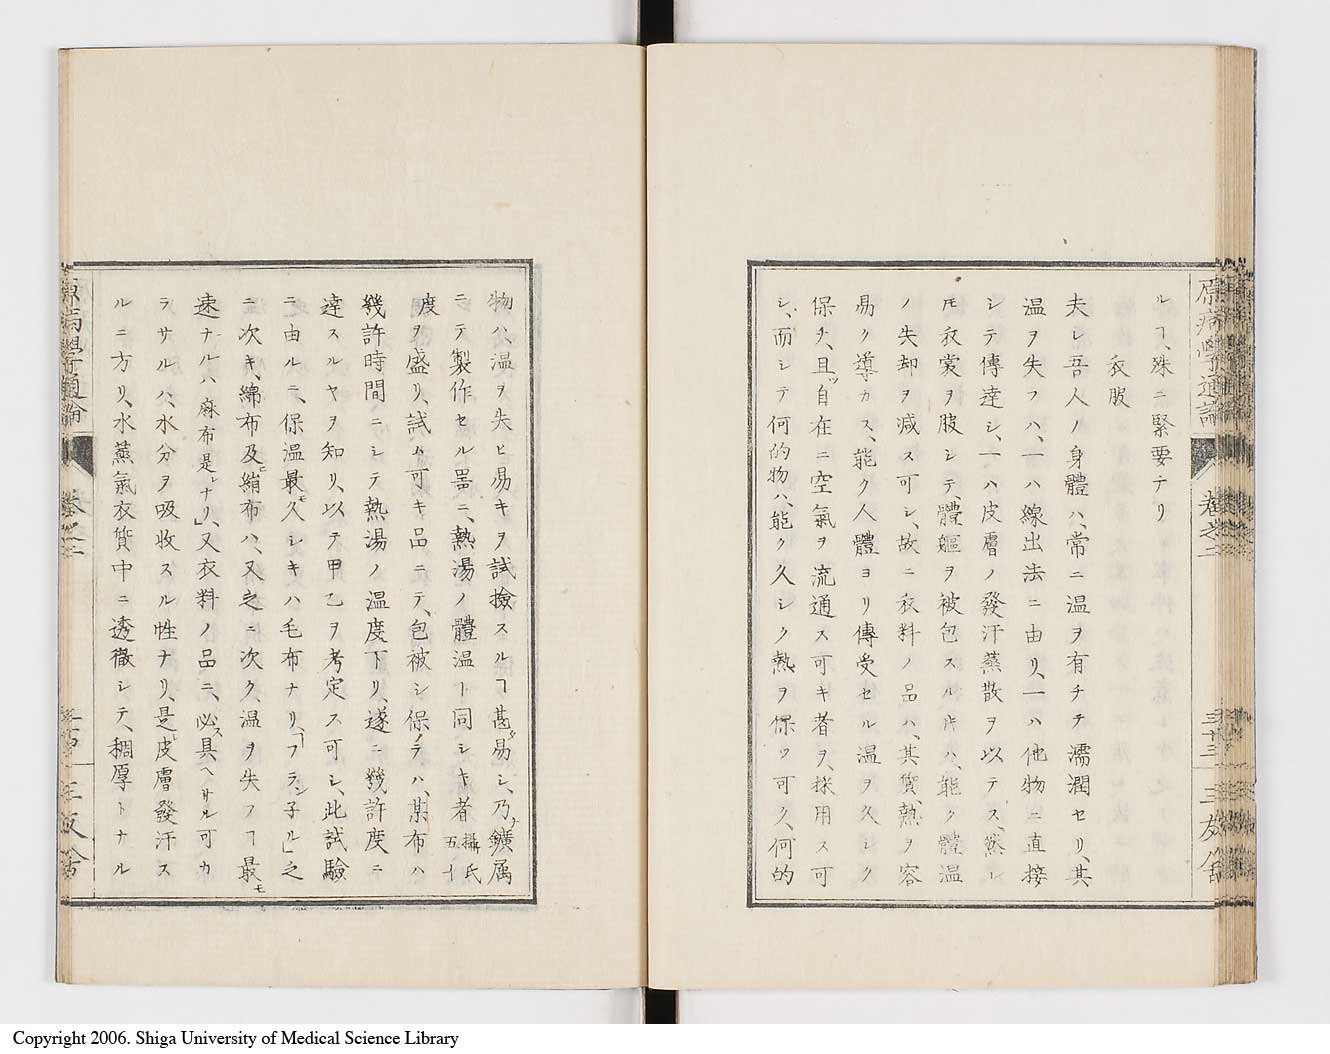 原病學通論
卷之二
三十三
三友舍
ルヿ、殊ニ緊要テリ
衣服
夫レ吾人ノ身體ハ、常ニ温ヲ有チテ濡潤セリ、其
温ヲ失フハ、一ハ線出法ニ由リ、一ハ他物ニ直接
シテ傳達シ、一ハ皮膚ノ發汗蒸散ヲ以テス、然レ
𪜈衣裳ヲ服シテ、體軀ヲ被包スル𪜈ハ、能ク體温
ノ失却ヲ減ス可シ、故ニ衣料ノ品ハ、其質、熱ヲ容
易ク導カス、能ク人體ヨリ傳受セル温ヲ久シク
保チ、且ツ自在ニ空氣ヲ流通ス可キ者ヲ、採用ス可
シ、而シテ何的物ハ、能ク久シク熱ヲ保ツ可ク、何的
物ハ、温ヲ失ヒ易キヲ試撿スルヿ甚ダ易シ、乃ナ鑛属
ニテ製作セル噐ニ、熱湯ノ體温ト同シキ者攝氏五十
度ヲ盛リ、試ム可キ品ニテ、包被シ保ノテハ、某布ハ
幾許時間ニシテ熱湯ノ温度下リ、遂ニ幾許度ニ
達スルヤヲ知リ、以テ甲乙ヲ考定ス可シ、此試驗
ニ由ルニ、保温最モ久シキハ毛布ナリ、「フラン子ル」之
ニ次キ、綿布及ヒ絹布ハ、又之ニ次ク、温ヲ失フヿ最モ
速ナルハ麻布是レナリ、」又衣料ノ品ニ、必ス具ヘサル可カ
ラサルハ、水分ヲ吸收スル性ナリ、是レ皮膚發汗ス
ルニ方リ、水蒸氣衣質中ニ透徹シテ、稠厚トナル
原病學通論
卷之二
三友舍
Copyright 2006. Shiga University of Medical Science Library